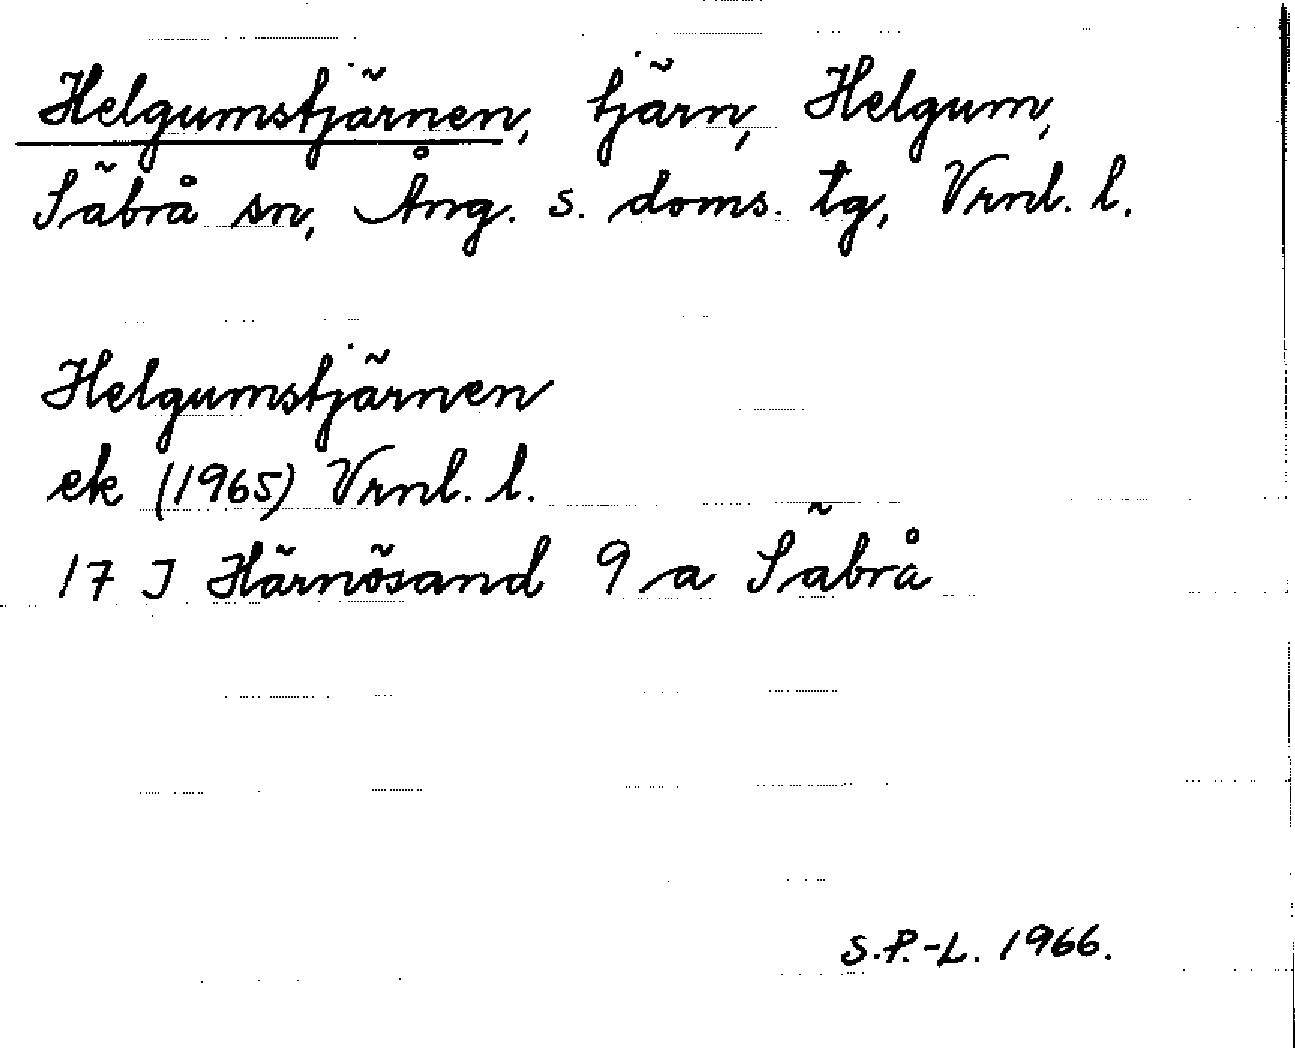 Helgumstjärnen, tjärn, Helgum,
Säbrå sn, Ång. s. doms. tg, Vrnl. l.
Helgumstjärnen
ek (1965) Vrnl. l.
17 J Härnösand 9 a Säbrå
S.P.-L. 1966.